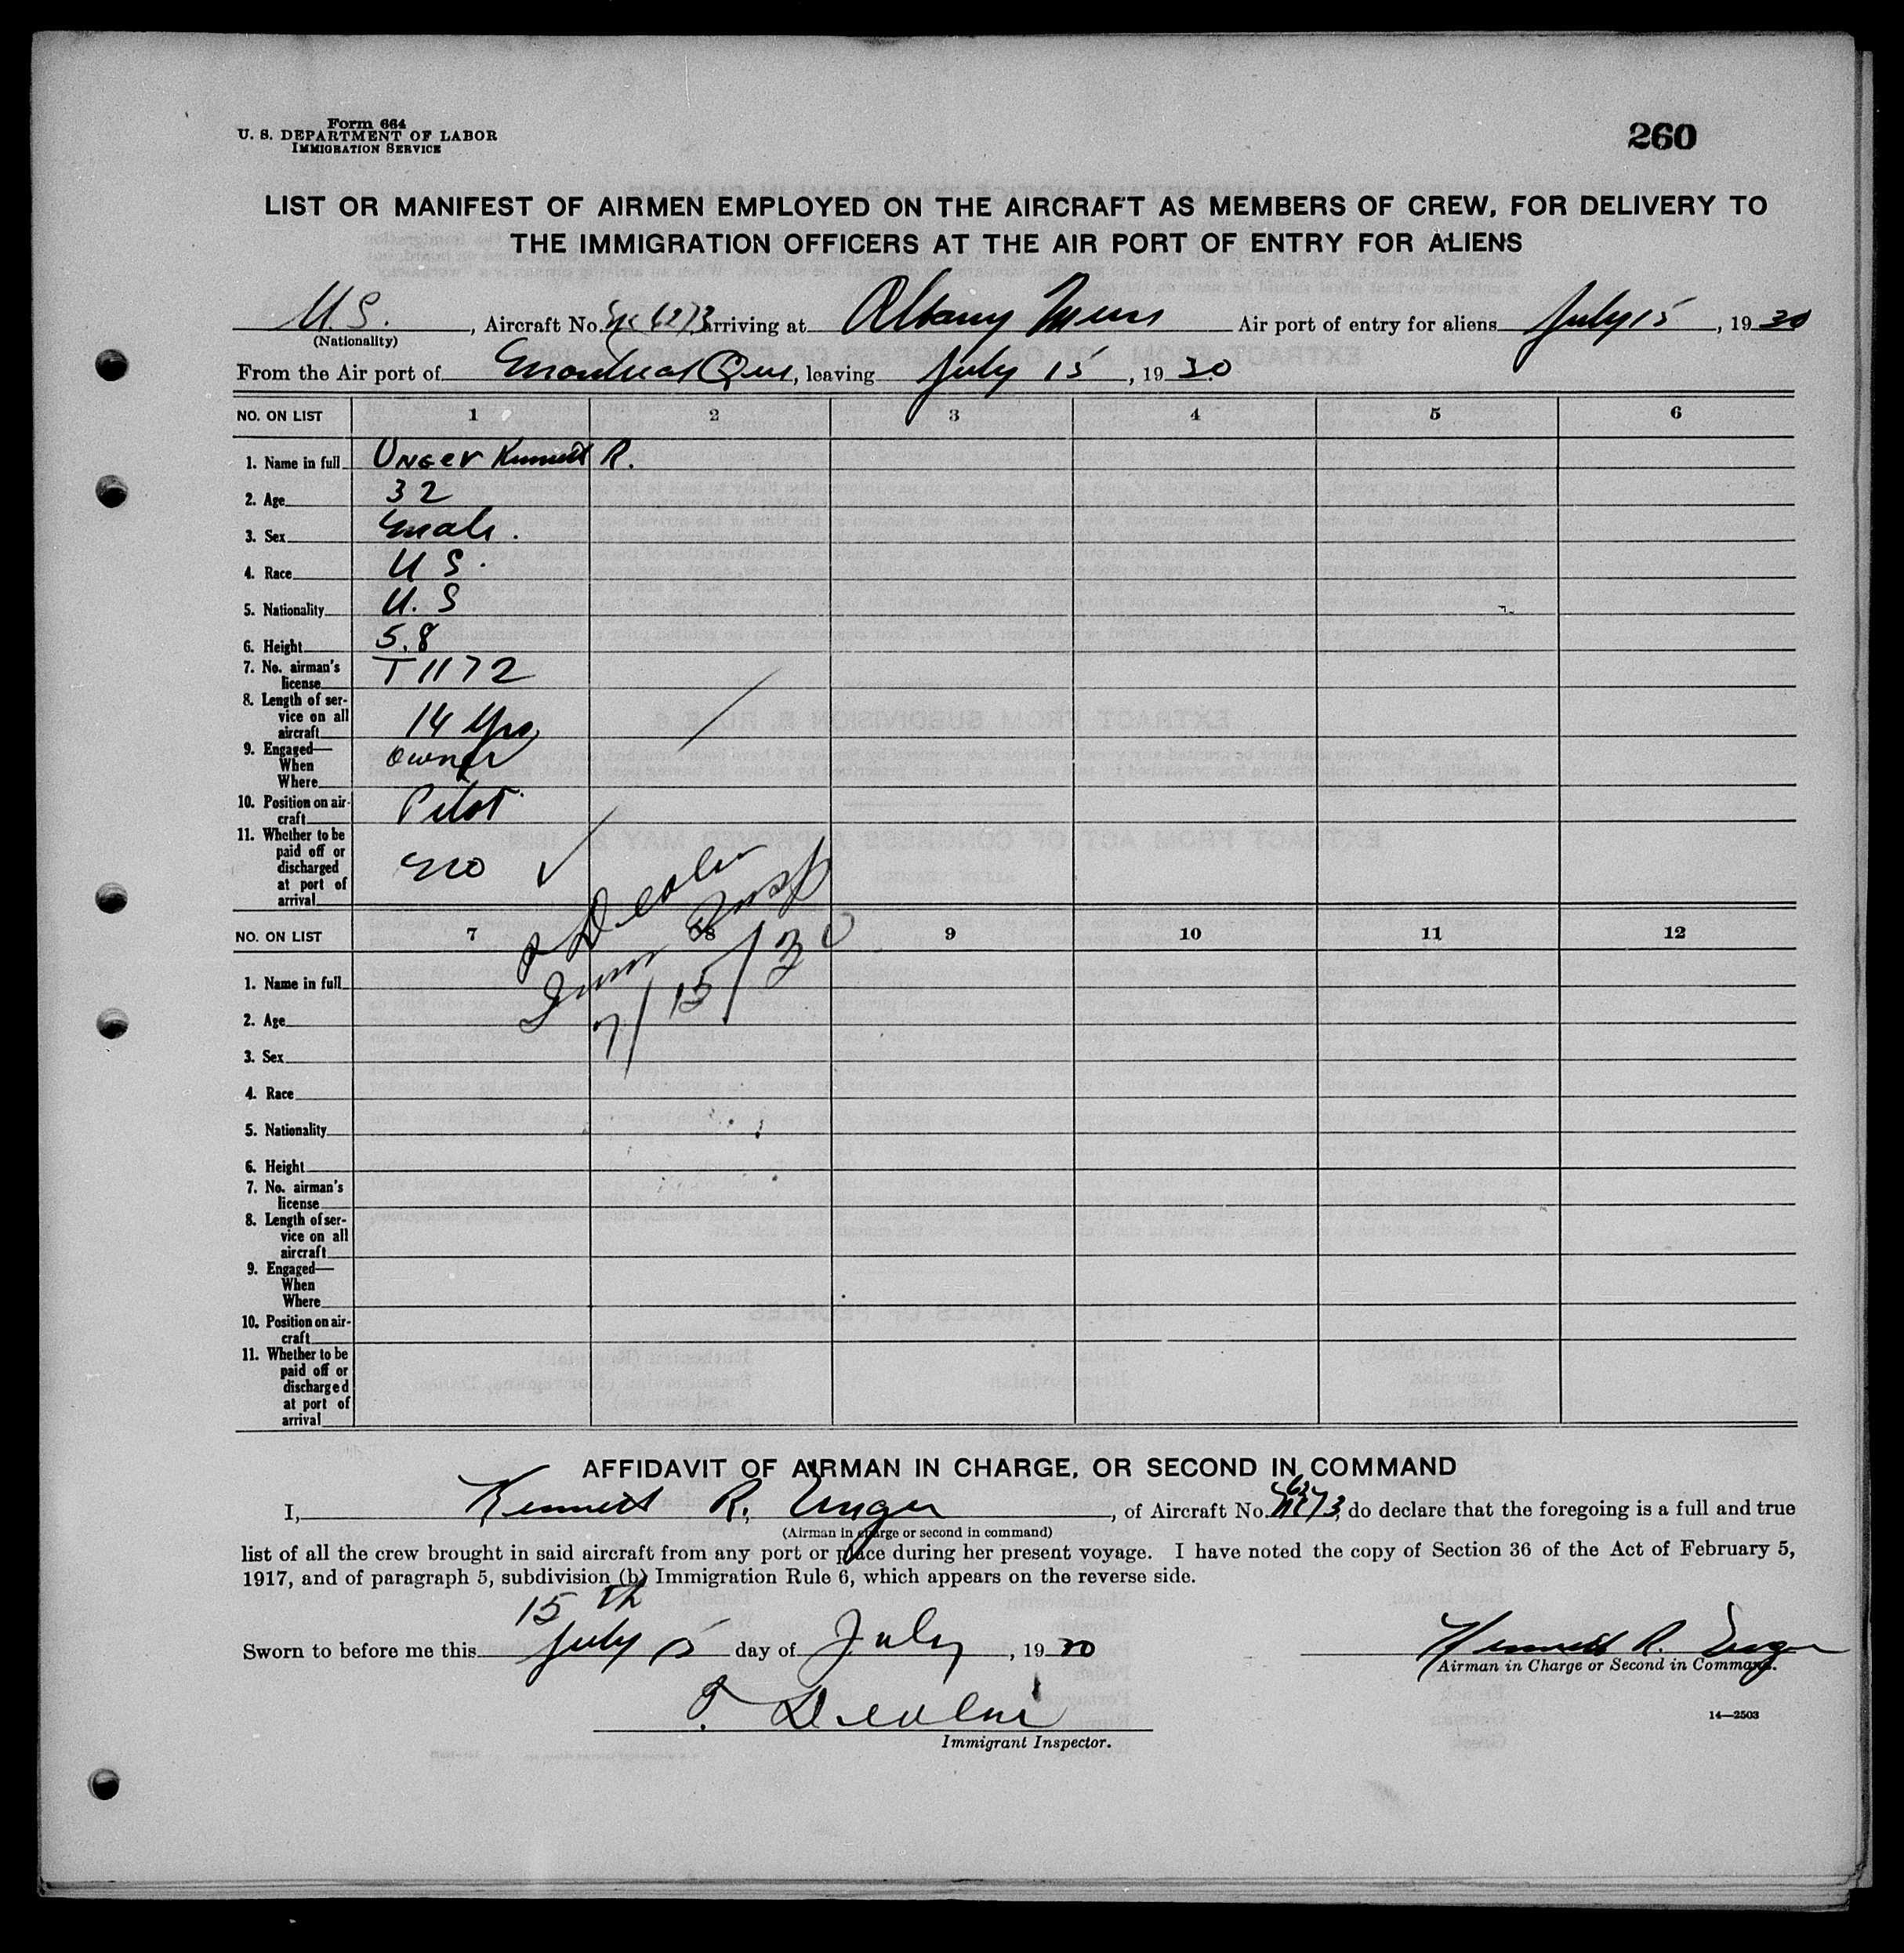 Form 664
U. S. DEPARTMENT OF LABOR
IMMIGRATION SERVICE
260
LIST OR MANIFEST OF AIRMEN EMPLOYED ON THE AIRCRAFT AS MEMBERS OF CREW, FOR DELIVERY TO
THE IMMIGRATION OFFICERS AT THE AIR PORT OF ENTRY FOR ALIENS
U.S. , Aircraft No. 6273 arriving at Albany Air port of entry for aliens July 15 , 1930
(Nationality)
From the Air port of Montreal Que , leaving July 15 , 1930
NO. ON LIST 1 2 3 4 5 6
1. Name in full Unger Kenneth R.
2. Age 32
3. Sex Male.
4. Race U S.
5. Nationality U. S
6. Height 5.8
7. No. airman's license T1172
8. Length of service on all aircraft 14 Yrs
9. Engaged— When Where owner
10. Position on aircraft Pilot
11. Whether to be paid off or discharged at port of arrival no ✓
Insp
7/15/30
NO. ON LIST 7 8 9 10 11 12
1. Name in full
2. Age
3. Sex
4. Race
5. Nationality
6. Height
7. No. airman's license
8. Length of service on all aircraft
9. Engaged— When Where
10. Position on aircraft
11. Whether to be paid off or discharged at port of arrival
AFFIDAVIT OF AIRMAN IN CHARGE, OR SECOND IN COMMAND
I, Kenneth R. Unger , of Aircraft No. , do declare that the foregoing is a full and true
(Airman in charge or second in command)
list of all the crew brought in said aircraft from any port or place during her present voyage. I have noted the copy of Section 36 of the Act of February 5,
1917, and of paragraph 5, subdivision (b) Immigration Rule 6, which appears on the reverse side.
15 th
Sworn to before me this July 15 day of July , 1930
Kenneth R. Unger
Airman in Charge or Second in Command.
Immigrant Inspector.
14—2503